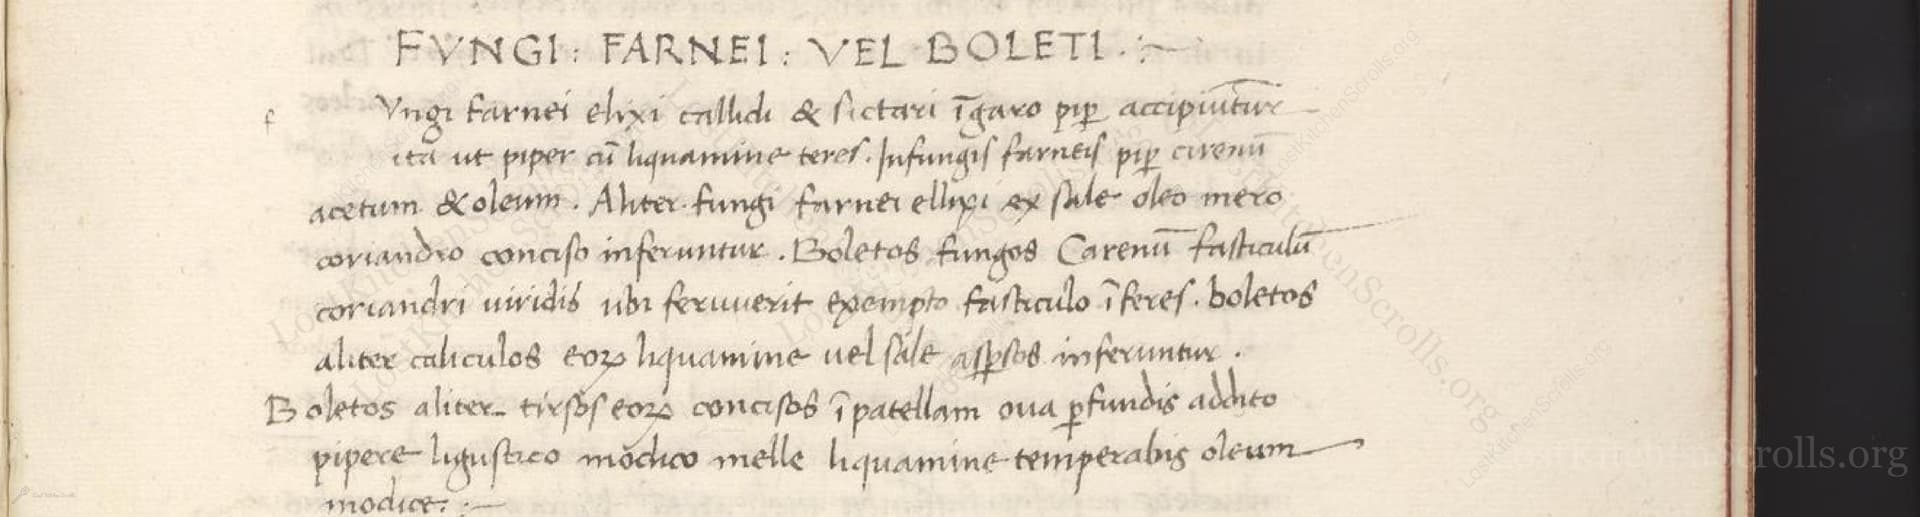 FVNGI : FARNEI : VEL BOLETI . :~
f Vngi farnei elixi callidi & sictari īgaro pip̄ accipiūtur
ita ut piper cū liquamine teres . Infungis farneis pip̄ cirenū
acetum & oleum . Aliter fungi farnei ellixi ex sale oleo mero
coriandro conciso inferuntur . Boletos fungos Carenū fasticulū
coriandri viridis ubi feruuerit exempto fasticulo īferes . boletos
aliter caliculos eoꝝ liquamine uel sale asꝑsos inferuntur .
Boletos aliter tirsos eoꝝ concisos ī patellam oua ꝑfundis addito
pipere ligustico modico melle liquamine temperabis oleum
modice : :~
LostKitchenScrolls.org